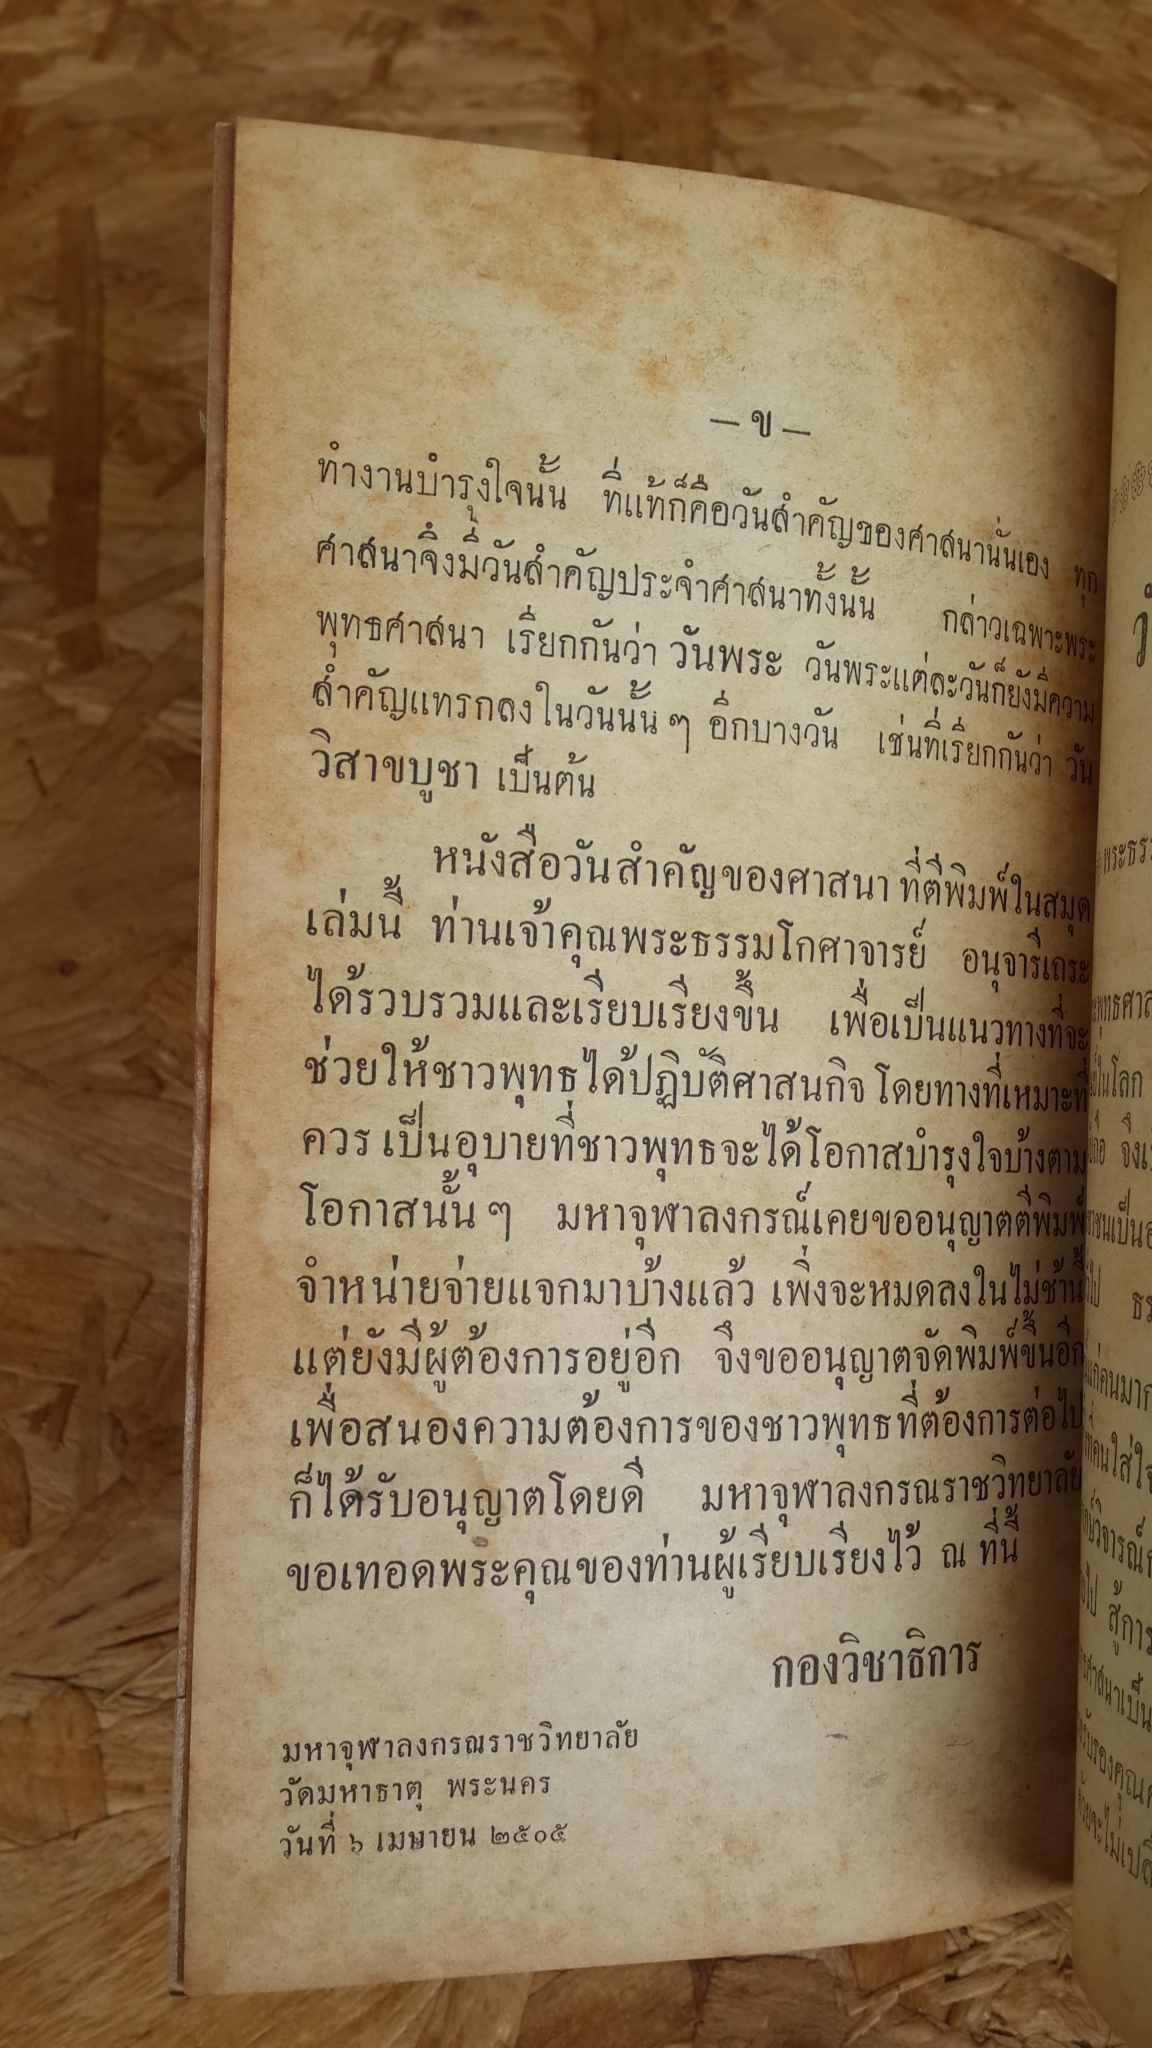 — ข —
ทำงานบำรุงใจนั้น ที่แท้ก็คือวันสำคัญของศาสนานั่นเอง ทุก
ศาสนาจึงมีวันสำคัญประจำศาสนาทั้งนั้น กล่าวเฉพาะพระ
พุทธศาสนา เรียกกันว่า วันพระ วันพระแต่ละวันก็ยังมีความ
สำคัญแทรกลงในวันนั้น ๆ อีกบางวัน เช่นที่เรียกกันว่า วัน
วิสาขบูชา เป็นต้น
หนังสือวันสำคัญของศาสนา ที่ตีพิมพ์ในสมุด
เล่มนี้ ท่านเจ้าคุณพระธรรมโกศาจารย์ อนุจารีเถระ
ได้รวบรวมและเรียบเรียงขึ้น เพื่อเป็นแนวทางที่จะ
ช่วยให้ชาวพุทธได้ปฏิบัติศาสนกิจ โดยทางที่เหมาะที่
ควร เป็นอุบายที่ชาวพุทธจะได้โอกาสบำรุงใจบ้างตาม
โอกาสนั้น ๆ มหาจุฬาลงกรณ์เคยขออนุญาตตีพิมพ์
จำหน่ายจ่ายแจกมาบ้างแล้ว เพิ่งจะหมดลงในไม่ช้านี้
แต่ยังมีผู้ต้องการอยู่อีก จึงขออนุญาตจัดพิมพ์ขึ้นอีก
เพื่อสนองความต้องการของชาวพุทธที่ต้องการต่อไป
ก็ได้รับอนุญาตโดยดี มหาจุฬาลงกรณราชวิทยาลัย
ขอเทอดพระคุณของท่านผู้เรียบเรียงไว้ ณ ที่นี้
กองวิชาธิการ
มหาจุฬาลงกรณราชวิทยาลัย
วัดมหาธาตุ พระนคร
วันที่ ๖ เมษายน ๒๕๐๕